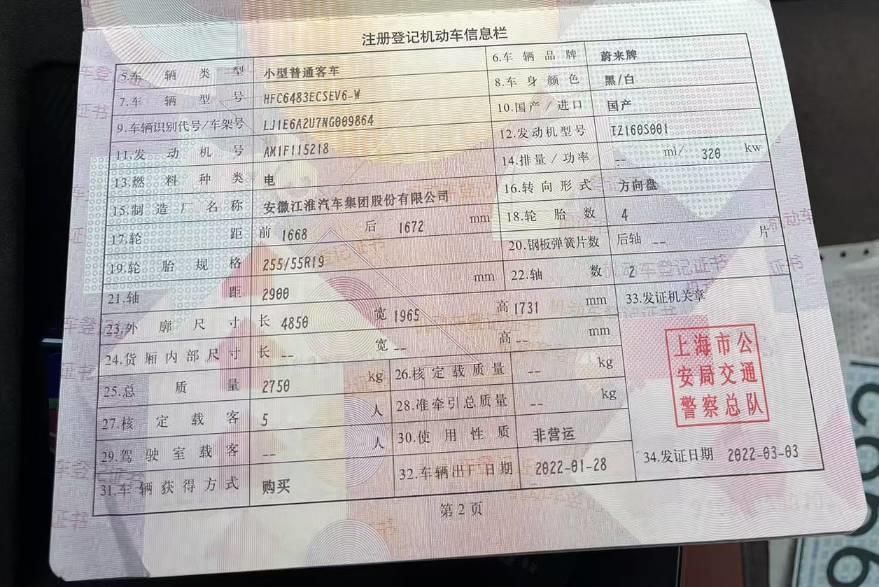 注册登记机动车信息栏
5.车辆类型 小型普通客车 6.车辆品牌 蔚来牌
7.车辆型号 HFC6483ECSEV6-W 8.车身颜色 黑/白
9.车辆识别代号/车架号 LJ1E6A2U7NG009864 10.国产/进口 国产
11.发动机号 AM1F115218 12.发动机型号 TZ160S001
13.燃料种类 电 14.排量/功率 -- ml/ 320 kw
15.制造厂名称 安徽江淮汽车集团股份有限公司 16.转向形式 方向盘
17.轮距 前 1668 后 1672 mm 18.轮胎数 4
19.轮胎规格 255/55R19 20.钢板弹簧片数 后轴 -- 片
21.轴距 2900 mm 22.轴数 2
23.外廓尺寸 长 4850 宽 1965 高 1731 mm 33.发证机关章
24.货厢内部尺寸 长 -- 宽 -- 高 -- mm
25.总质量 2750 kg 26.核定载质量 -- kg
27.核定载客 5 人 28.准牵引总质量 -- kg
29.驾驶室载客 -- 人 30.使用性质 非营运
31.车辆获得方式 购买 32.车辆出厂日期 2022-01-28 34.发证日期 2022-03-03
上海市公
安局交通
警察总队
第2页